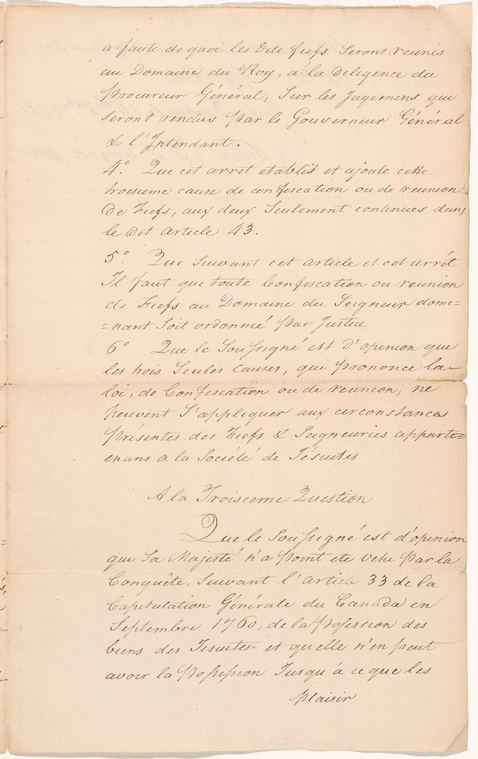 a faute de quoi les Dits fiefs Seront reunis
au Domaine du Roy, a la Diligence du
Procureur Général, Sur les Jugemens qui
Seront rendus par le Gouverneur Général
& l'Intendant.
4.º Que cet arret etablit et ajoute cette
troisieme cause de confiscation ou de reunion
de Fiefs, aux deux Seulement continues dans
le dit Article 43.
5.º Que Suivant cet article et cet arrét
Il faut que toute Confiscation ou reunion
de Fiefs au Domaine du Seigneur domi=
=nant Soit ordonneé par Justice
6º Que le Soussigné est d'opinion que
les trois Seules causes, qui prononce la
loi, de Confiscation ou de reunion, ne
peuvent S'appliquer aux circonstances
présentes des Fiefs & Seigneuries apparte=
enans a la Société de Jésuites
A la Troisieme Question
Que le Soussigné est d'opinion
que Sa Majesté n'a point eté vetu par la
Conquête, Suivant l'article 33 de la
Capitulation Générale du Canada en
Septembre 1760, de la possession des
biens des Jesuites et quelle n'en peut
avoir la Possession Jusqu'à ce que les
plaisir